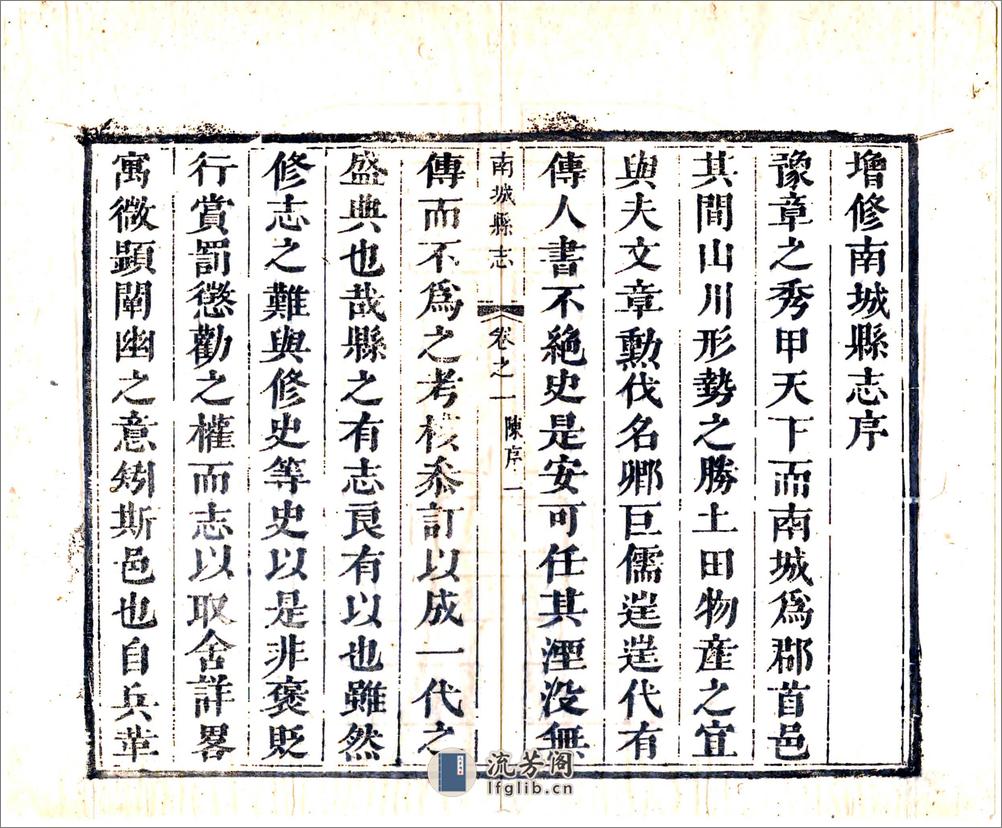 增修南城縣志序
豫章之秀甲天下而南城爲郡首邑
其間山川形勢之勝土田物產之宜
與夫文章勳伐名卿巨儒逞逞代有
傳人書不絶史是安可任其湮没無
南城縣志 卷之一 陳序 一
傳而不爲之考核叅訂以成一代之
盛典也哉縣之有志良有以也雖然
修志之難與修史等史以是非褒貶
行賞罰懲勸之權而志以取舍詳畧
寓微顕闡幽之意矧斯邑也自兵革
流芳阁
lfglib.cn